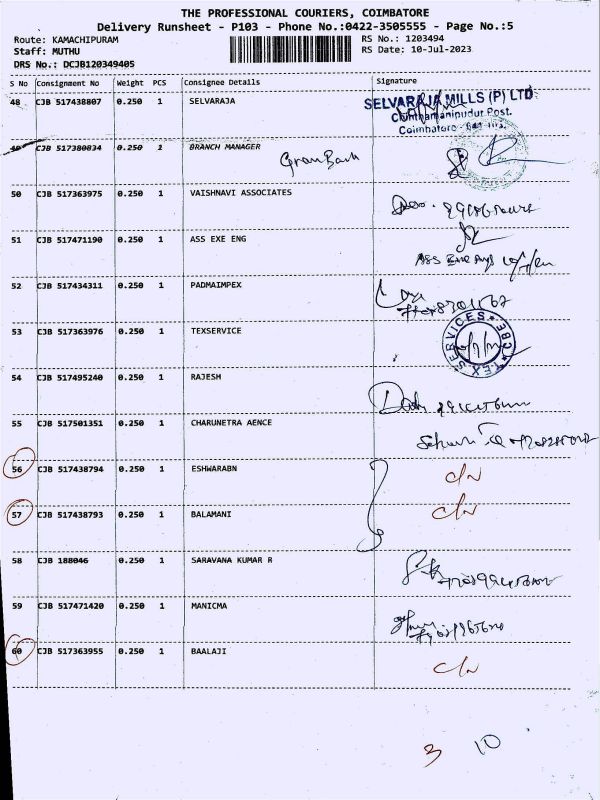 THE PROFESSIONAL COURIERS, COIMBATORE
Delivery Runsheet - P103 - Phone No.:0422-3505555 - Page No.:5
Route: KAMACHIPURAM RS No.: 1203494
Staff: MUTHU RS Date: 10-Jul-2023
DRS No.: DCJB120349405
S No Consignment No Weight PCS Consignee Details Signature
48 CJB 517438807 0.250 1 SELVARAJA
SELVARAJA MILLS (P) LTD
Chinthamanipudur Post.
Coimbatore - 641 103.
49 CJB 517380034 0.250 1 BRANCH MANAGER
50 CJB 517363975 0.250 1 VAISHNAVI ASSOCIATES
51 CJB 517471190 0.250 1 ASS EXE ENG
52 CJB 517434311 0.250 1 PADMAIMPEX
53 CJB 517363976 0.250 1 TEXSERVICE
TEX SERVICES CBE
54 CJB 517495240 0.250 1 RAJESH
55 CJB 517501351 0.250 1 CHARUNETRA AENCE
56 CJB 517438794 0.250 1 ESHWARABN C/N
57 CJB 517438793 0.250 1 BALAMANI C/N
58 CJB 188046 0.250 1 SARAVANA KUMAR R
59 CJB 517471420 0.250 1 MANICMA
60 CJB 517363955 0.250 1 BAALAJI C/N
3 10